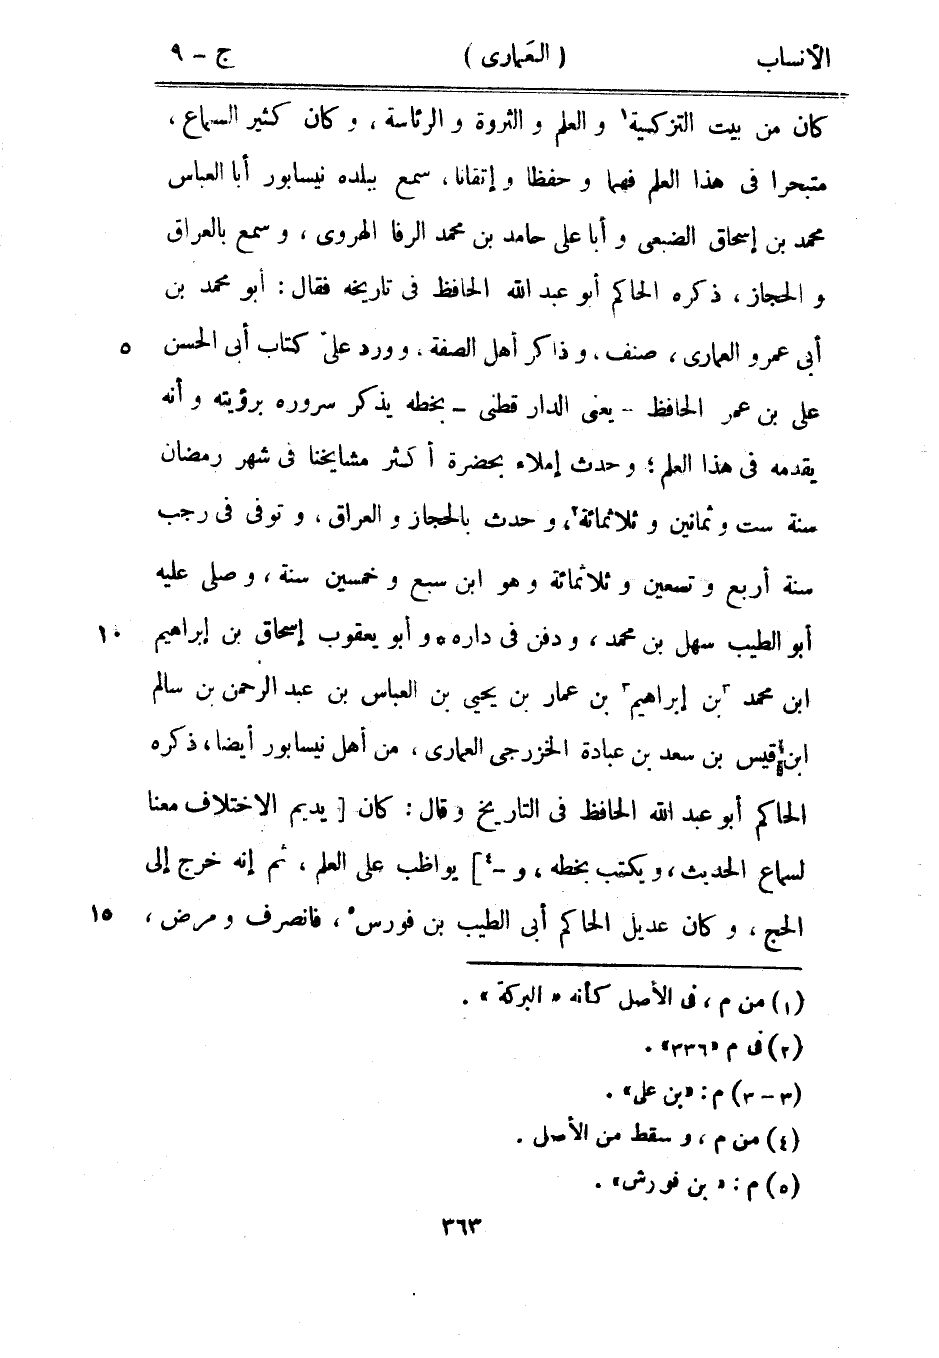 الأنساب (العمارى) ج - ٩
كان من بيت التزكية١ و العلم و الثروة و الرئاسة، و كان كثير السماع،
متبحرا فى هذا العلم فهما و حفظا و إتقانا، سمع ببلده نيسابور أبا العباس
محمد بن إسحاق الضبعى و أبا على حامد بن محمد الرفا الهروى، و سمع بالعراق
و الحجاز، ذكره الحاكم أبو عبد الله الحافظ فى تاريخه فقال: أبو محمد بن
أبى عمرو العمارى، صنف، و ذاكر أهل الصفة، و ورد علىّ كتاب أبى الحسن ٥
على بن عمر الحافظ - يعنى الدار قطنى - بخطه يذكر سروره برؤيته و أنه
يقدمه فى هذا العلم؛ و حدث إملاء بحضرة أكثر مشايخنا فى شهر رمضان
سنة ست و ثمانين و ثلاثمائة٢، و حدث بالحجاز و العراق، و توفى فى رجب
سنة أربع و تسعين و ثلاثمائة و هو ابن سبع و خمسين سنة، و صلى عليه
أبو الطيب سهل بن محمد، و دفن فى داره * و أبو يعقوب إسحاق بن إبراهيم ١٠
ابن محمد ٣بن إبراهيم٣ بن عمار بن يحيى بن العباس بن عبد الرحمن بن سالم
ابن قيس بن سعد بن عبادة الخزرجى العمارى، من أهل نيسابور أيضا، ذكره
الحاكم أبو عبد الله الحافظ فى التاريخ و قال: كان [ يديم الاختلاف معنا
لسماع الحديث، و يكتب بخطه، و -٤] يواظب على العلم، ثم إنه خرج إلى
الحج، و كان عديل الحاكم أبى الطيب بن فورس٥، فانصرف و مرض، ١٥
(١) من م، فى الأصل كأنه « البركة » .
(٢) فى م «٣٣٦» .
(٣ - ٣) م: «بن على» .
(٤) من م، و سقط من الأصل .
(٥) م: « بن فورش» .
٣٦٣